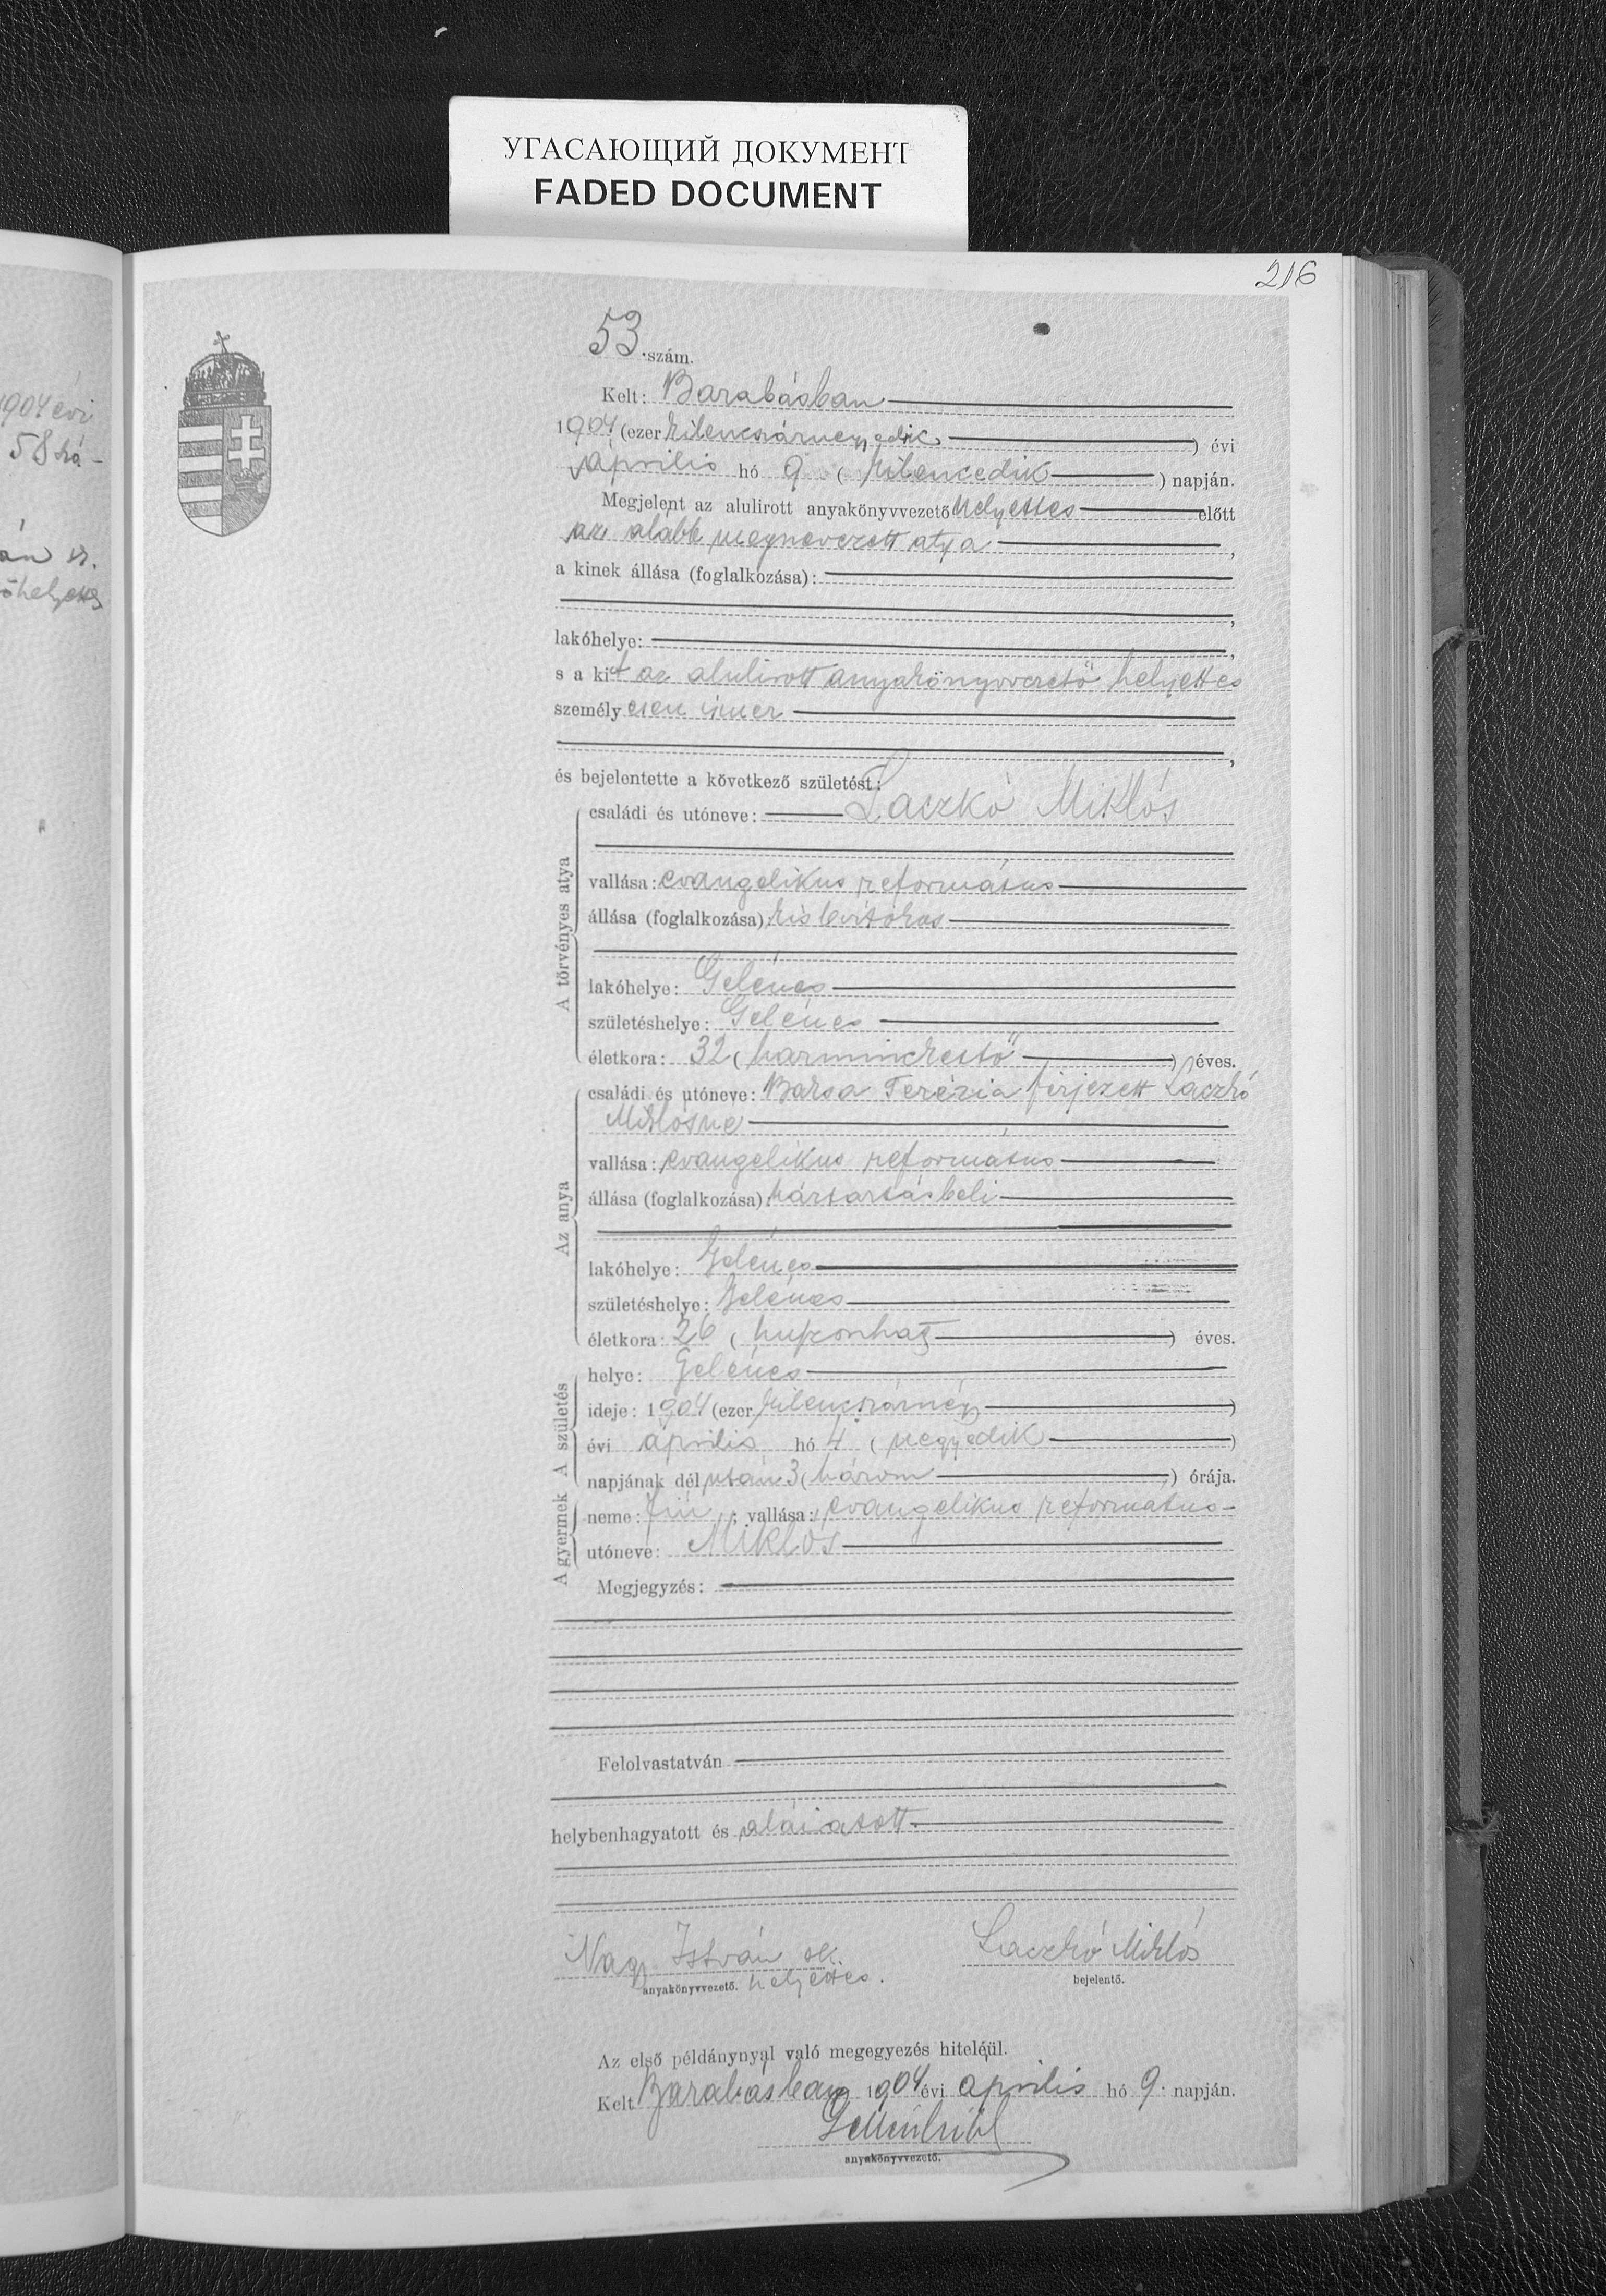 УГАСАЮЩИЙ ДОКУМЕНТ
FADED DOCUMENT
216
1904 évi
58 szá-
án s.
őhelyettes
53. szám.
Kelt: Barabásban
1904 (ezer kilencszáznegyedik) évi
április hó 9 (kilencedik) napján.
Megjelent az alulirott anyakönyvvezető helyettes előtt
az alább megnevezett atya,
a kinek állása (foglalkozása):
,
lakóhelye: ,
s a kit az alulirott anyakönyvvezető helyettes
személyesen ismer
,
és bejelentette a következő születést:
A törvényes atya
családi és utóneve: Laczkó Miklós
vallása: evangelikus református
állása (foglalkozása): kisbirtokos
lakóhelye: Gelénes
születéshelye: Gelénes
életkora: 32 (harminckettő) éves.
Az anya
családi és utóneve: Barsa Terézia férjezett Laczkó
Miklósné
vallása: evangelikus református
állása (foglalkozása): háztartásbeli
lakóhelye: Gelénes
születéshelye: Gelénes
életkora: 26 (huszonhat) éves.
A születés
helye: Gelénes
ideje: 1904 (ezer kilencszáznégy)
évi április hó 4 (negyedik)
napjának dél után 3 (három) órája.
A gyermek
neme: fiú; vallása: evangelikus református
utóneve: Miklós
Megjegyzés:
Felolvastatván
helybenhagyatott és aláiratott.
Nagy István sk. Laczkó Miklós
anyakönyvvezető. helyettes. bejelentő.
Az első példánynyal való megegyezés hiteléül.
Kelt Barabásban 1904 évi április hó 9. napján.
anyakönyvvezető.